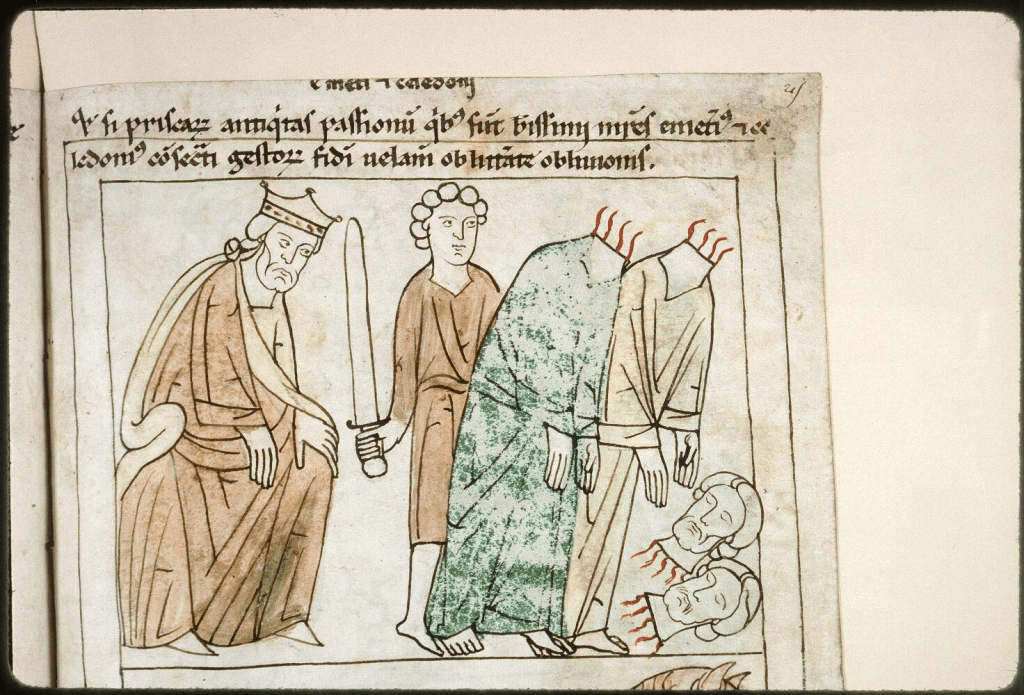 emetī ⁊ celedonij
Et si priscaꝝ antiq̇tas passionū q̇bꝰ sūt b̄issimi mr̄es emetīꝰ ⁊ ce
ledoniꝰ cōsec̄ti gestoꝝ fidī uelam̄ oblitt̄ate obliuionis.